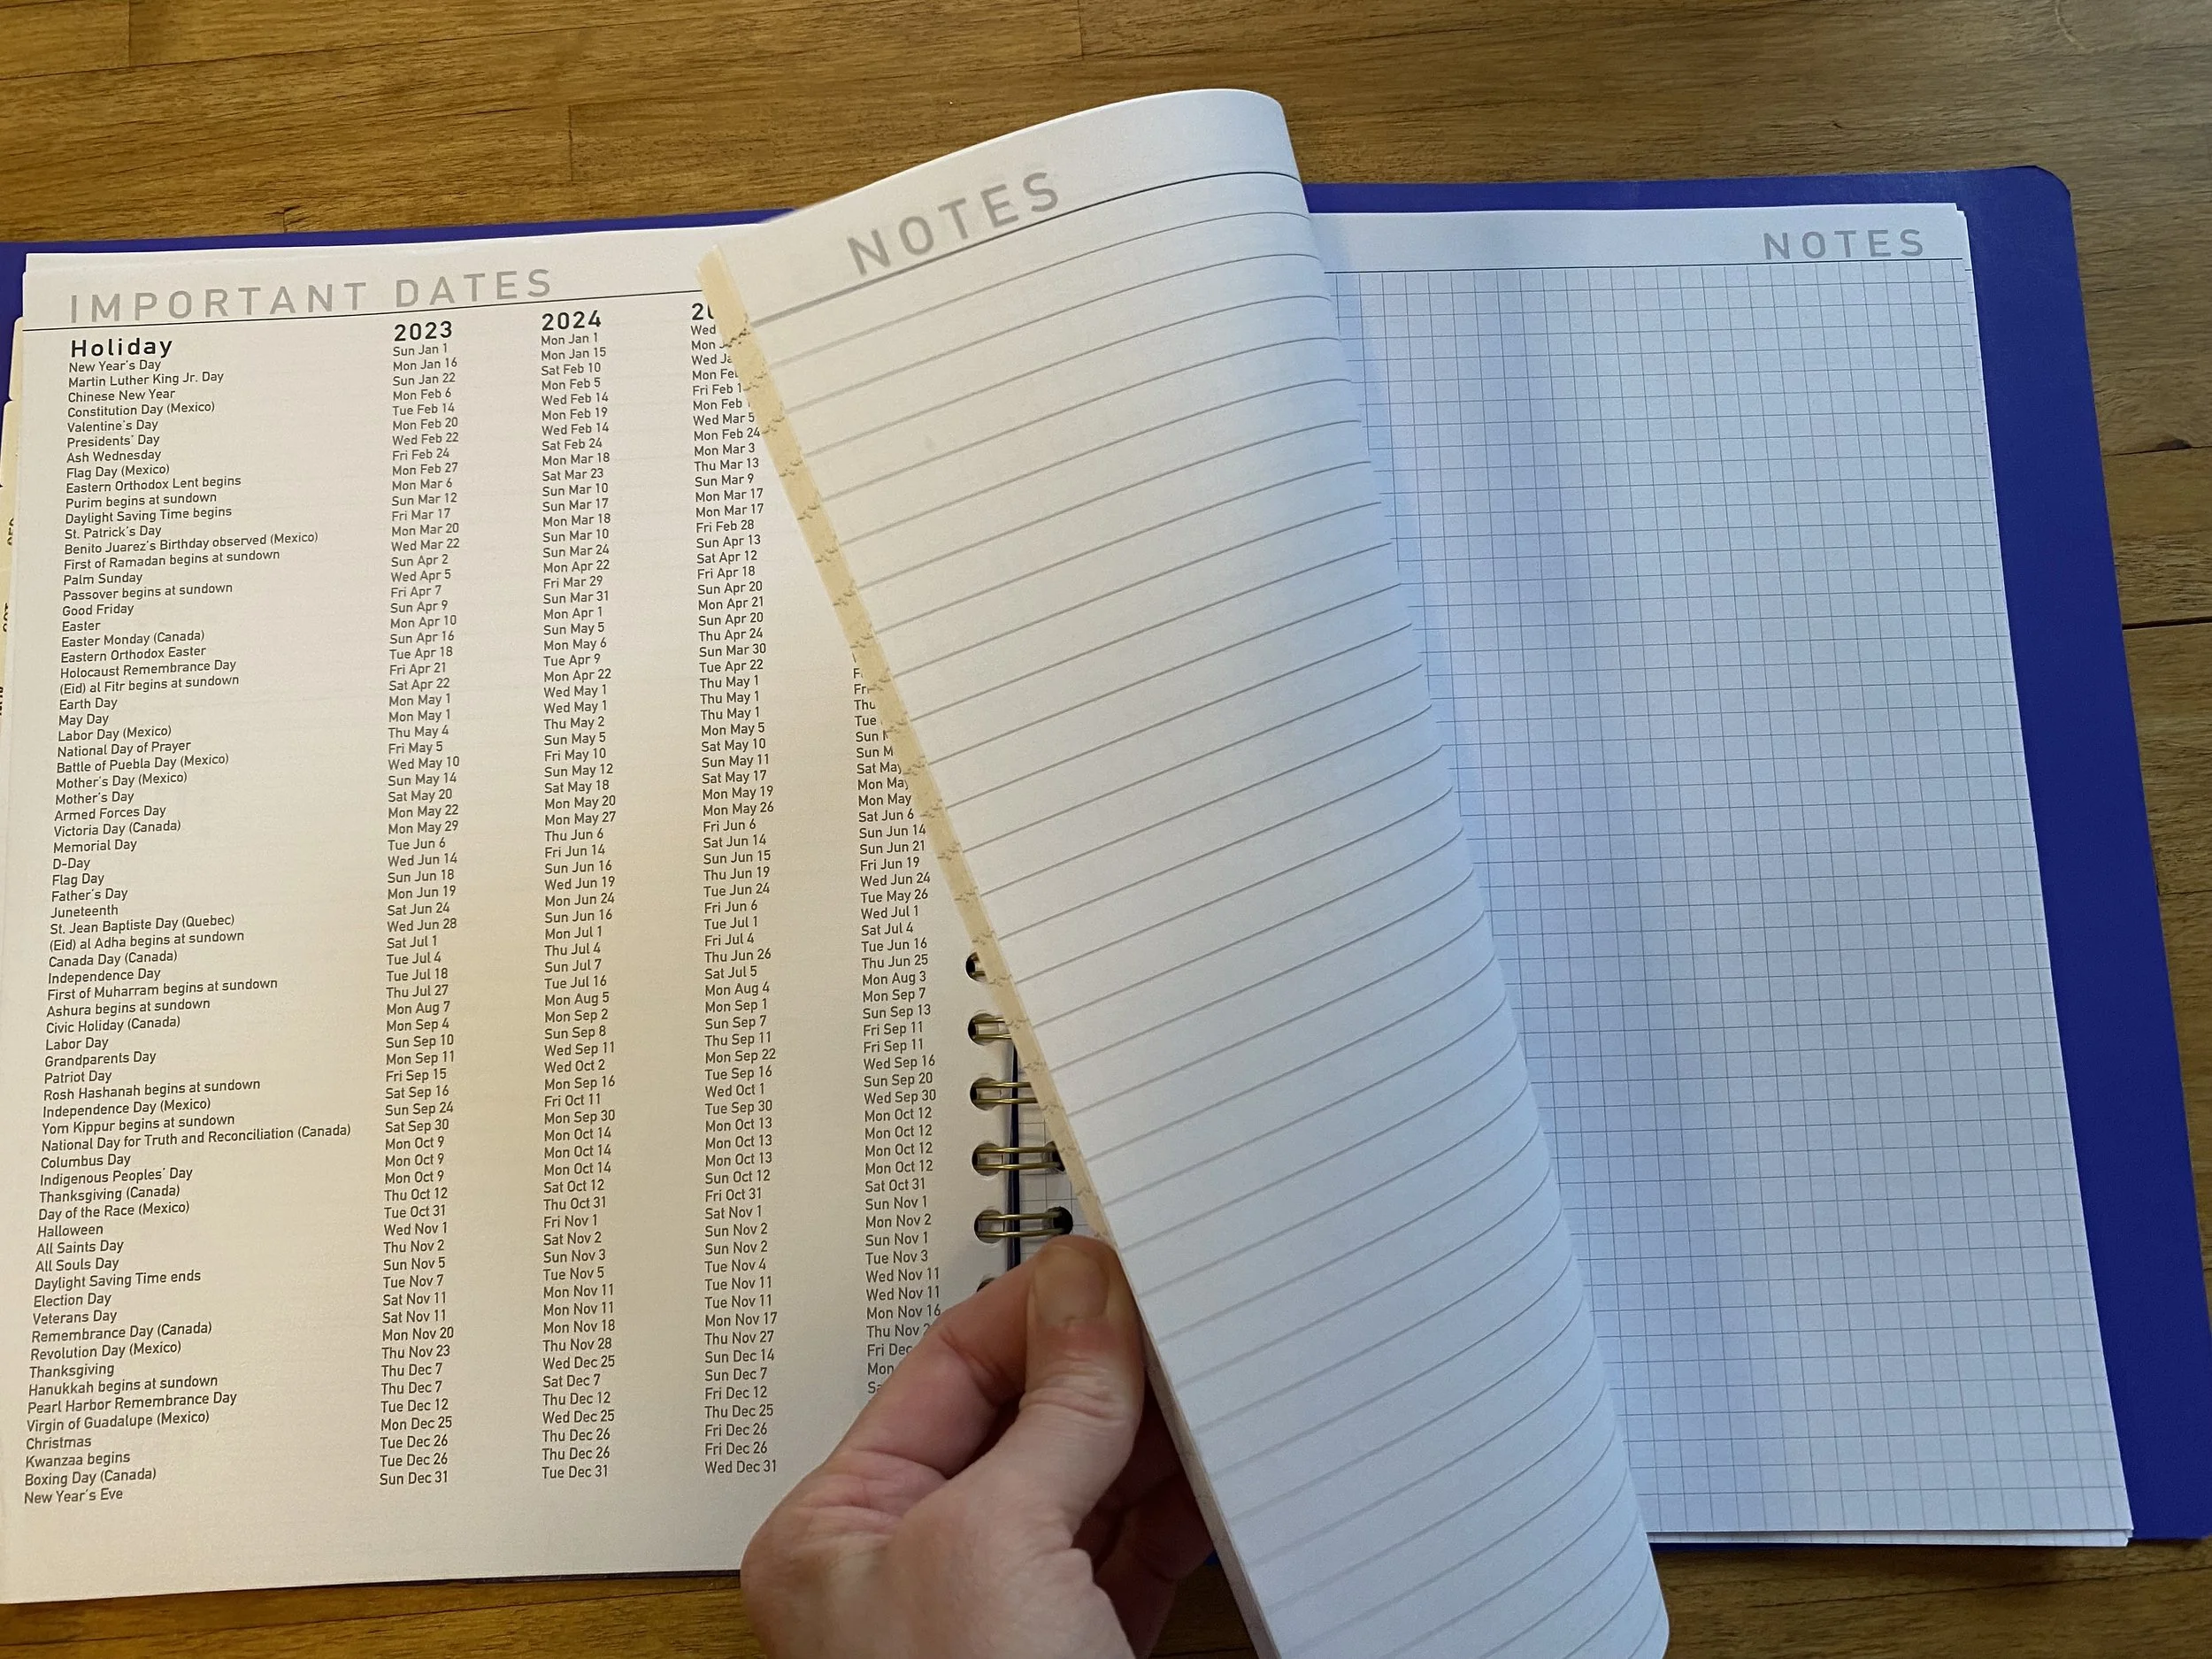 IMPORTANT DATES
Holiday 2023 2024
New Year's Day Sun Jan 1 Mon Jan 1 Wed
Martin Luther King Jr. Day Mon Jan 16 Mon Jan 15 Mon
Chinese New Year Sun Jan 22 Sat Feb 10 Wed
Constitution Day (Mexico) Mon Feb 6 Mon Feb 5 Mon
Valentine's Day Tue Feb 14 Wed Feb 14 Fri Feb
Presidents' Day Mon Feb 20 Mon Feb 19 Mon Feb
Ash Wednesday Wed Feb 22 Wed Feb 14 Wed Mar 5
Flag Day (Mexico) Fri Feb 24 Sat Feb 24 Mon Feb 24
Eastern Orthodox Lent begins Mon Feb 27 Mon Mar 18 Mon Mar 3
Purim begins at sundown Mon Mar 6 Sat Mar 23 Thu Mar 13
Daylight Saving Time begins Sun Mar 12 Sun Mar 10 Sun Mar 9
St. Patrick's Day Fri Mar 17 Sun Mar 17 Mon Mar 17
Benito Juarez's Birthday observed (Mexico) Mon Mar 20 Mon Mar 18 Mon Mar 17
First of Ramadan begins at sundown Wed Mar 22 Sun Mar 10 Fri Feb 28
Palm Sunday Sun Apr 2 Sun Mar 24 Sun Apr 13
Passover begins at sundown Wed Apr 5 Mon Apr 22 Sat Apr 12
Good Friday Fri Apr 7 Fri Mar 29 Fri Apr 18
Easter Sun Apr 9 Sun Mar 31 Sun Apr 20
Easter Monday (Canada) Mon Apr 10 Mon Apr 1 Mon Apr 21
Eastern Orthodox Easter Sun Apr 16 Sun May 5 Sun Apr 20
Holocaust Remembrance Day Tue Apr 18 Mon May 6 Thu Apr 24
(Eid) al Fitr begins at sundown Fri Apr 21 Tue Apr 9 Sun Mar 30
Earth Day Sat Apr 22 Mon Apr 22 Tue Apr 22
May Day Mon May 1 Wed May 1 Thu May 1
Labor Day (Mexico) Mon May 1 Wed May 1 Thu May 1
National Day of Prayer Thu May 4 Thu May 2 Thu May 1 Thu
Battle of Puebla Day (Mexico) Fri May 5 Sun May 5 Mon May 5 Tue
Mother's Day (Mexico) Wed May 10 Fri May 10 Sat May 10 Sun
Mother's Day Sun May 14 Sun May 12 Sun May 11 Sun
Armed Forces Day Sat May 20 Sat May 18 Sat May 17 Sat May
Victoria Day (Canada) Mon May 22 Mon May 20 Mon May 19 Mon May
Memorial Day Mon May 29 Mon May 27 Mon May 26 Mon May
D-Day Tue Jun 6 Thu Jun 6 Fri Jun 6 Sat Jun 6
Flag Day Wed Jun 14 Fri Jun 14 Sat Jun 14 Sun Jun 14
Father's Day Sun Jun 18 Sun Jun 16 Sun Jun 15 Sun Jun 21
Juneteenth Mon Jun 19 Wed Jun 19 Thu Jun 19 Fri Jun 19
St. Jean Baptiste Day (Quebec) Sat Jun 24 Mon Jun 24 Tue Jun 24 Wed Jun 24
(Eid) al Adha begins at sundown Wed Jun 28 Sun Jun 16 Fri Jun 6 Tue May 26
Canada Day (Canada) Sat Jul 1 Mon Jul 1 Tue Jul 1 Wed Jul 1
Independence Day Tue Jul 4 Thu Jul 4 Fri Jul 4 Sat Jul 4
First of Muharram begins at sundown Tue Jul 18 Sun Jul 7 Thu Jun 26 Tue Jun 16
Ashura begins at sundown Thu Jul 27 Tue Jul 16 Sat Jul 5 Thu Jun 25
Civic Holiday (Canada) Mon Aug 7 Mon Aug 5 Mon Aug 4 Mon Aug 3
Labor Day Mon Sep 4 Mon Sep 2 Mon Sep 1 Mon Sep 7
Grandparents Day Sun Sep 10 Sun Sep 8 Sun Sep 7 Sun Sep 13
Patriot Day Mon Sep 11 Wed Sep 11 Thu Sep 11 Fri Sep 11
Rosh Hashanah begins at sundown Fri Sep 15 Wed Oct 2 Mon Sep 22 Fri Sep 11
Independence Day (Mexico) Sat Sep 16 Mon Sep 16 Tue Sep 16 Wed Sep 16
Yom Kippur begins at sundown Sun Sep 24 Fri Oct 11 Wed Oct 1 Sun Sep 20
National Day for Truth and Reconciliation (Canada) Sat Sep 30 Mon Sep 30 Tue Sep 30 Wed Sep 30
Columbus Day Mon Oct 9 Mon Oct 14 Mon Oct 13 Mon Oct 12
Indigenous Peoples' Day Mon Oct 9 Mon Oct 14 Mon Oct 13 Mon Oct 12
Thanksgiving (Canada) Mon Oct 9 Mon Oct 14 Mon Oct 13 Mon Oct 12
Day of the Race (Mexico) Thu Oct 12 Sat Oct 12 Sun Oct 12 Mon Oct 12
Halloween Tue Oct 31 Thu Oct 31 Fri Oct 31 Sat Oct 31
All Saints Day Wed Nov 1 Fri Nov 1 Sat Nov 1 Sun Nov 1
All Souls Day Thu Nov 2 Sat Nov 2 Sun Nov 2 Mon Nov 2
Daylight Saving Time ends Sun Nov 5 Sun Nov 3 Sun Nov 2 Sun Nov 1
Election Day Tue Nov 7 Tue Nov 5 Tue Nov 4 Tue Nov 3
Veterans Day Sat Nov 11 Mon Nov 11 Tue Nov 11 Wed Nov 11
Remembrance Day (Canada) Sat Nov 11 Mon Nov 11 Tue Nov 11 Wed Nov 11
Revolution Day (Mexico) Mon Nov 20 Mon Nov 18 Mon Nov 17 Mon Nov 16
Thanksgiving Thu Nov 23 Thu Nov 28 Thu Nov 27 Thu Nov
Hanukkah begins at sundown Thu Dec 7 Wed Dec 25 Sun Dec 14 Fri Dec
Pearl Harbor Remembrance Day Thu Dec 7 Sat Dec 7 Sun Dec 7 Mon
Virgin of Guadalupe (Mexico) Tue Dec 12 Thu Dec 12 Fri Dec 12
Christmas Mon Dec 25 Wed Dec 25 Thu Dec 25
Kwanzaa begins Tue Dec 26 Thu Dec 26 Fri Dec 26
Boxing Day (Canada) Tue Dec 26 Thu Dec 26 Fri Dec 26
New Year's Eve Sun Dec 31 Tue Dec 31 Wed Dec 31
NOTES
NOTES